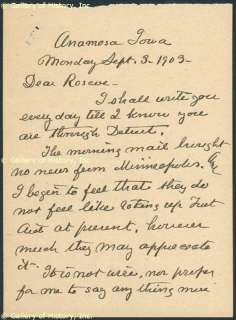 Anamosa Iowa
Monday Sept. 3 - 1903 -
Dear Roscoe -
I shall write you
every day till I know you
are through Detroit.
The morning mail brought
no news from Minneapolis.
I begin to feel that they do
not feel like taking up Just
at present, however
much they may appreciate
it -
It is not wise, nor proper
for me to say any thing more
© Gallery of History, Inc.